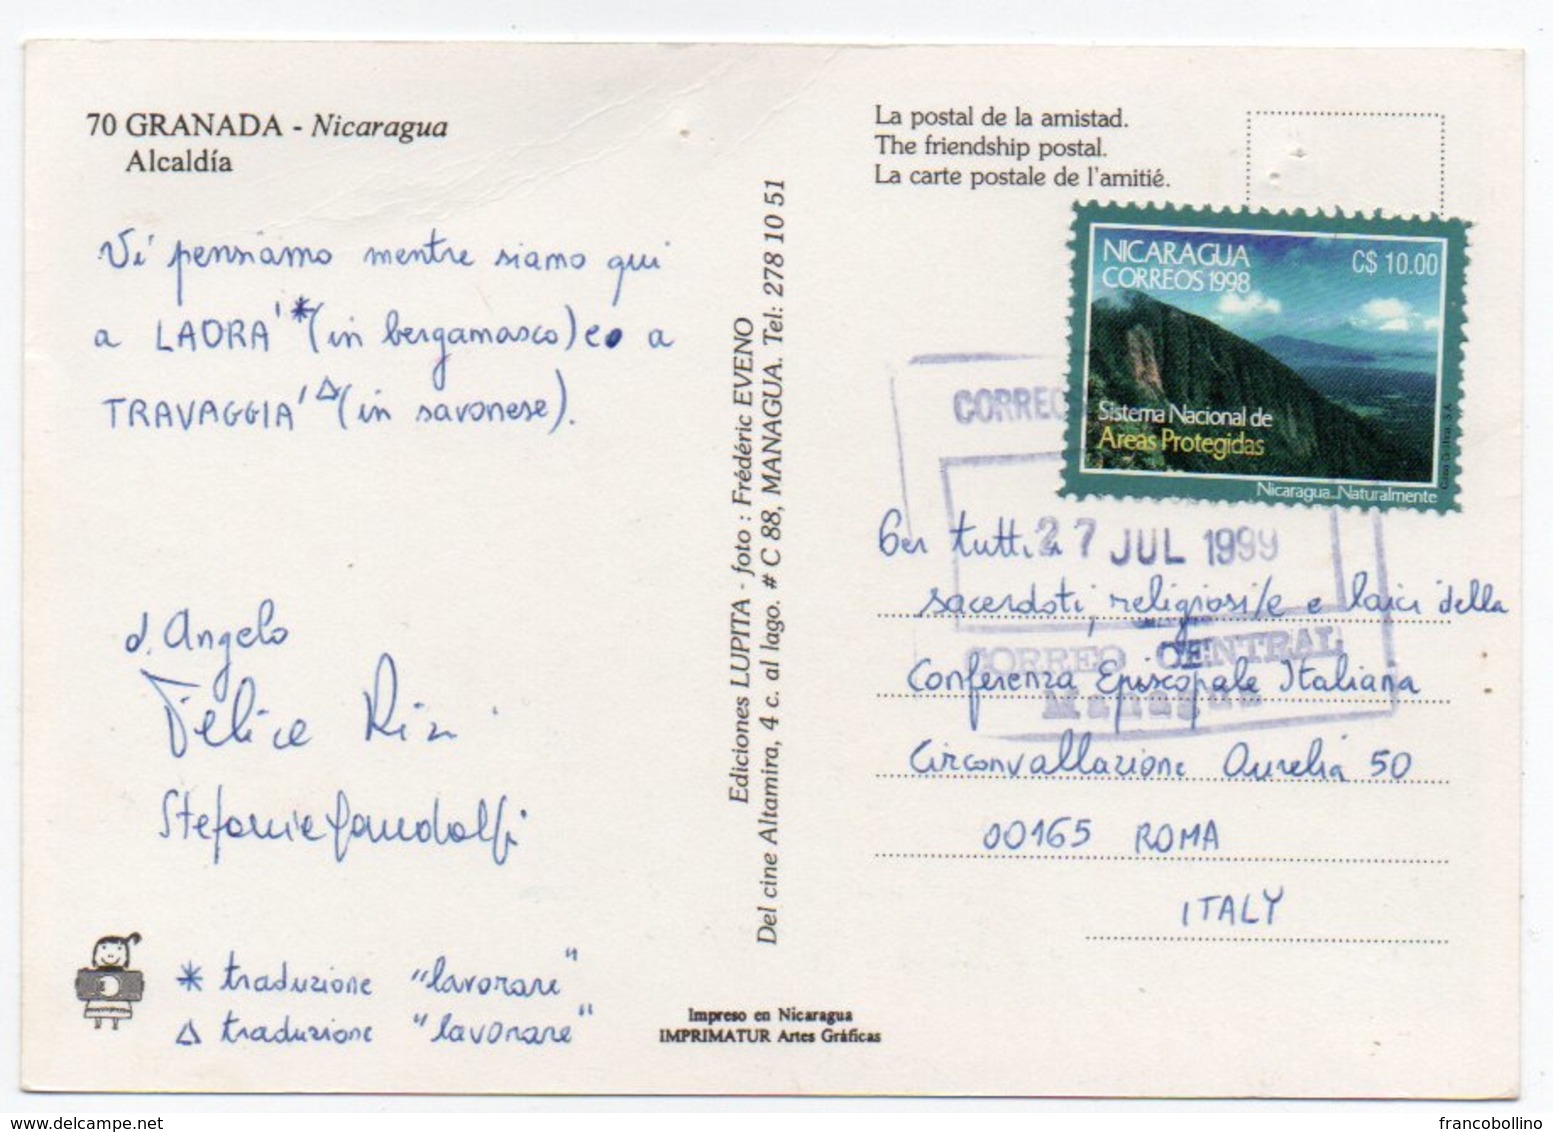 70 GRANADA - Nicaragua
Alcaldía
Vi pensiamo mentre siamo qui
a LAORA'* (in bergamasco) e a
TRAVAGGIA'△ (in savonese).
d. Angelo
Felice Rizzi
Stefania Gandolfi
* traduzione "lavorare"
△ traduzione "lavorare"
Ediciones LUPITA - foto : Frédéric EVENO
Del cine Altamira, 4 c. al lago. # C 88, MANAGUA. Tel: 278 10 51
Impreso en Nicaragua
IMPRIMATUR Artes Gráficas
La postal de la amistad.
The friendship postal.
La carte postale de l'amitié.
NICARAGUA C$ 10.00
CORREOS 1998
Sistema Nacional de
Areas Protegidas
Nicaragua...Naturalmente
27 JUL 1999
CORREO CENTRAL
Managua
Per tutti i
sacerdoti, religiosi/e e laici della
Conferenza Episcopale Italiana
Circonvallazione Aurelia 50
00165 ROMA
ITALY
delcampe.net
francobollino